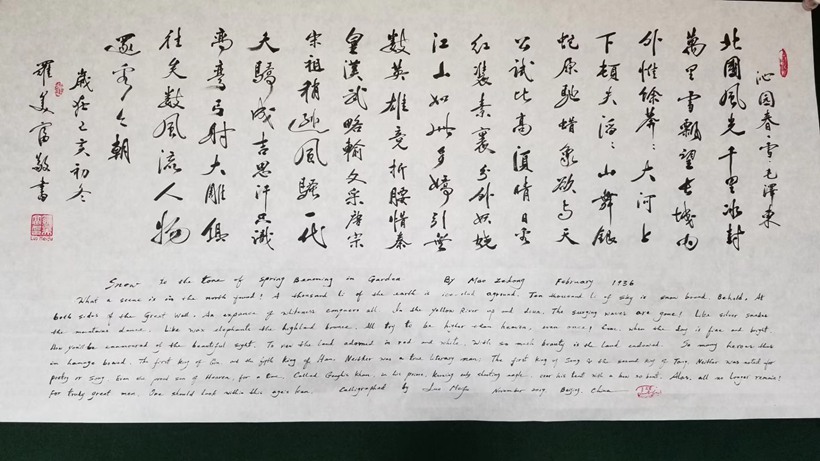 沁园春·雪 毛泽东
北國風光千里冰封
萬里雪飄望长城内
外惟餘莽:大河上
下頓失滔:山舞銀
蛇原馳蜡象欲与天
公試比高須晴日看
红裝素裹分外妖娆
江山如此多嬌引無
数英雄竞折腰惜秦
皇漢武略輸文采唐宗
宋祖稍逊风騷一代
天驕成吉思汗只識
彎弓射大雕俱
往矣数風流人物
還看今朝
歲在己亥初冬
羅美富敬書
Snow to the tone of Spring Beaming in Garden By Mao Zedong February 1936
What a scene is in the north found! A thousand li of the earth is aground. Ten thousand li of sky is snow bound. Behold. At
both sides of the Great Wall. An expanse of whiteness conquers all. In the yellow River up and down. The surging waves are gone! Like silver snakes
the mountains dance. Like wax elephants the highland bounce. All try to be higher than heaven, even once! Come when the day is fine and bright
You would be enamoured of the beautiful sight. To see the land adorned in red and white. With so much beauty is the land endowed. So many heroes thus
in homage bowed. The first king of Qin and the fifth king of Han. Neither was a true literary man; The first king of Song and the second king of Tang. Neither was noted for
poetry or song. Even the proud son of Heaven, for a time. Called Genghis Khan, in his prime. Knowing only shooting eagle, over his tent with a bow so bent. Alas, all no longer remain!
For truly great men. One should look within this age's ken. Calligraphed by Luo Meifu November Beijing, China